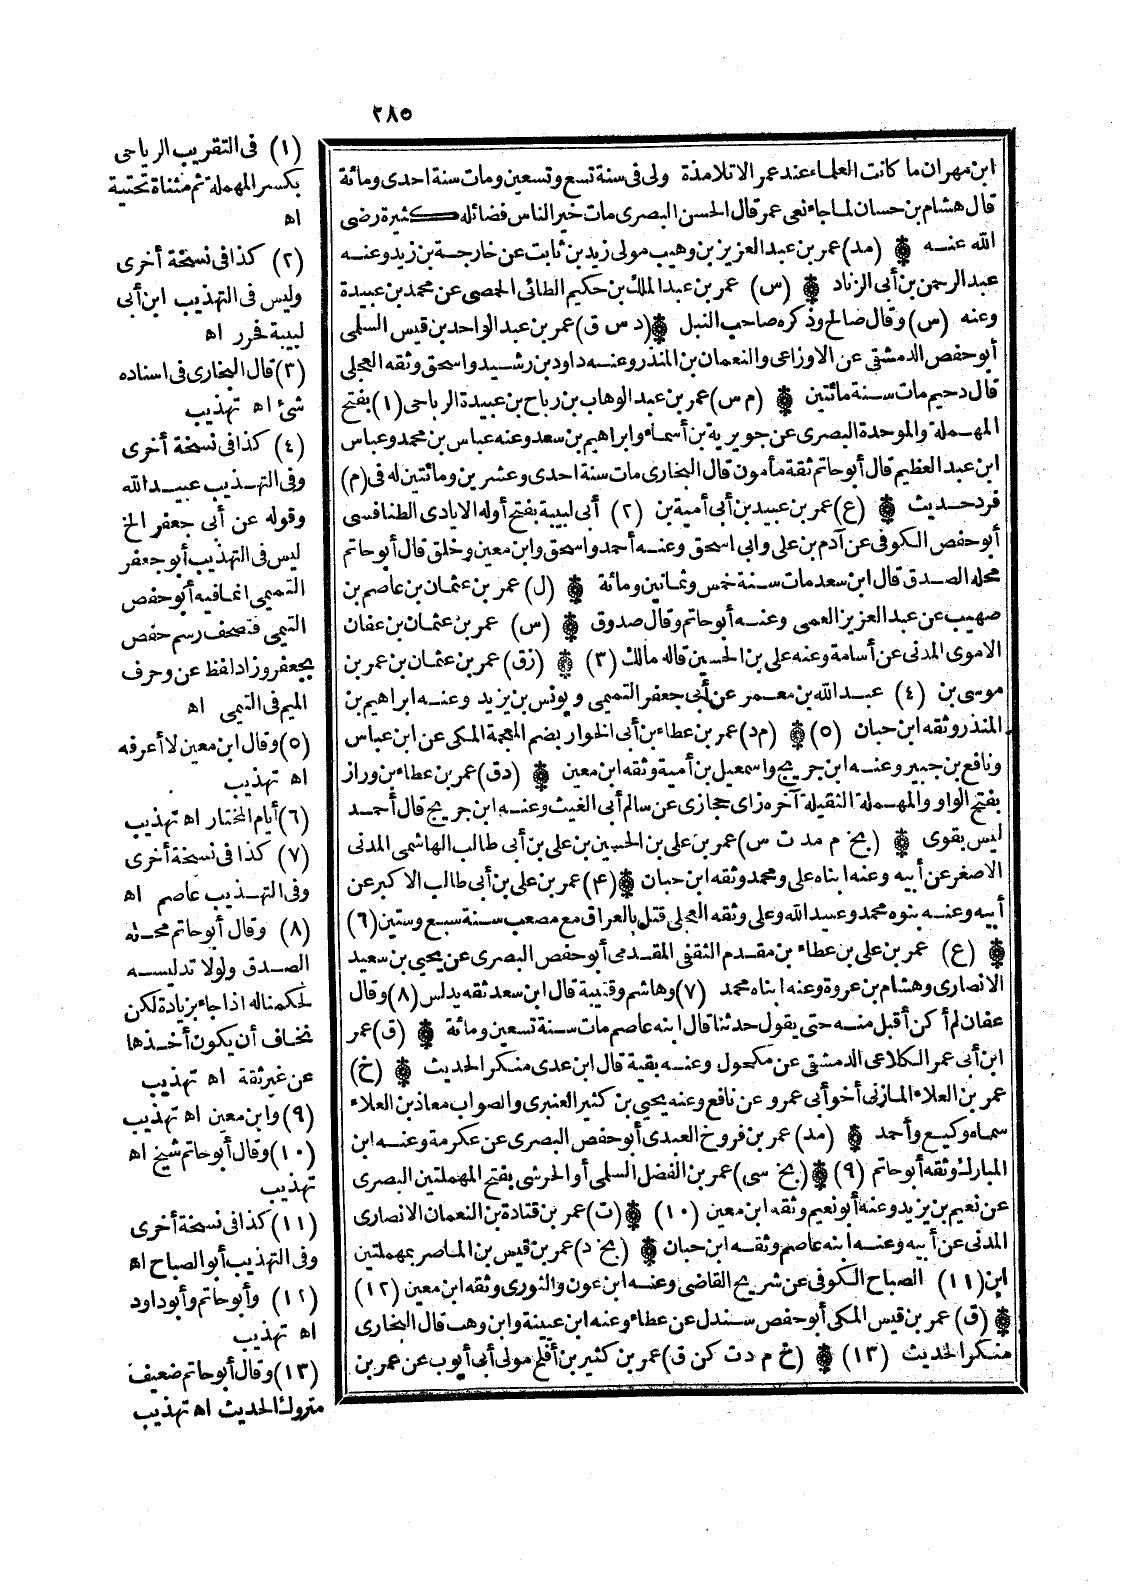 ٢٨٥
ابن مهران ما كانت العلماء عند عمر الا تلامذة ولى فى سنة تسع وتسعين ومات سنة احدى ومائة
قال هشام بن حسان لما جاء نعى عمر قال الحسن البصرى مات خير الناس فضائله كثيرة رضى
الله عنه ۞ (مد) عمر بن عبد العزيز بن وهيب مولى زيد بن ثابت عن خارجة بن زيد وعنه
عبد الرحمن بن أبى الزناد ۞ (س) عمر بن عبد الملك بن حكيم الطائى الحمصى عن محمد بن عبيدة
وعنه (س) وقال صالح وذكره صاحب النبل ۞ (د س ق) عمر بن عبد الواحد بن قيس السلمى
أبو حفص الدمشقى عن الاوزاعى والنعمان بن المنذر وعنه داود بن رشيد واسحق وثقه العجلى
قال دحيم مات سنة مائتين ۞ (م س) عمر بن عبد الوهاب بن رباح بن عبيدة الرياحى (١) بفتح
المهملة والموحدة البصرى عن جويرية بن أسماء وابراهيم بن سعد وعنه عباس بن محمد وعباس
ابن عبد العظيم قال أبو حاتم ثقة مأمون قال البخارى مات سنة احدى وعشرين ومائتين له فى (م)
فرد حديث ۞ (ع) عمر بن عبيد بن أبى أمية بن (٢) أبى لبيبة بفتح أوله الايادى الطنافسى
أبو حفص الكوفى عن آدم بن على وابى اسحق وعنه أحمد واسحق وابن معين وخلق قال أبو حاتم
محله الصدق قال ابن سعد مات سنة خمس وثمانين ومائة ۞ (ل) عمر بن عثمان بن عاصم بن
صهيب عن عبد العزيز العمى وعنه أبو حاتم وقال صدوق ۞ (س) عمر بن عثمان بن عفان
الاموى المدنى عن أسامة وعنه على بن الحسين قاله مالك (٣) ۞ (زق) عمر بن عثمان بن عمر بن
موسى بن (٤) عبد الله بن معمر عن أبى جعفر التميمى ويونس بن يزيد وعنه ابراهيم بن
المنذر وثقه ابن حبان (٥) ۞ (م د) عمر بن عطاء بن أبى الخوار بضم المعجمة المكى عن ابن عباس
ونافع بن جبير وعنه ابن جريج واسمعيل بن أمية وثقه ابن معين ۞ (دق) عمر بن عطاء بن وراز
بفتح الواو والمهملة الثقيلة آخره زاى حجازى عن سالم أبى الغيث وعنه ابن جريج قال أحمد
ليس بقوى ۞ (بخ م مد ت س) عمر بن على بن الحسين بن على بن أبى طالب الهاشمى المدنى
الاصغر عن أبيه وعنه ابناه على ومحمد وثقه ابن حبان ۞ (٤) عمر بن على بن أبى طالب الاكبر عن
أبيه وعنه بنوه محمد وعبيد الله وعلى وثقه العجلى قتل بالعراق مع مصعب سنة سبع وستين (٦)
۞ (ع) عمر بن على بن عطاء بن مقدم الثقفى المقدمى أبو حفص البصرى عن يحيى بن سعيد
الانصارى وهشام بن عروة وعنه ابناه محمد (٧) وهاشم وقتيبة قال ابن سعد ثقه يدلس (٨) وقال
عفان لم أكن أقبل منه حتى يقول حدثنا قال ابنه عاصم مات سنة تسعين ومائة ۞ (ق) عمر
ابن أبى عمر الكلاعى الدمشقى عن مكحول وعنه بقية قال ابن عدى منكر الحديث ۞ (خ)
عمر بن العلاء المازنى أخو أبى عمرو عن نافع وعنه يحيى بن كثير العنبرى والصواب معاذ بن العلاء
سماه وكيع وأحمد ۞ (مد) عمر بن فروخ العبدى أبو حفص البصرى عن عكرمة وعنه ابن
المبارك وثقه أبو حاتم (٩) ۞ (بخ سى) عمر بن الفضل السلمى أو الحرشى بفتح المهملتين البصرى
عن نعيم بن يزيد وعنه أبو نعيم وثقه ابن معين (١٠) ۞ (ت) عمر بن قتادة بن النعمان الانصارى
المدنى عن أبيه وعنه ابنه عاصم وثقه ابن حبان ۞ (بخ د) عمر بن قيس بن الماصر بمهملتين
ابن (١١) الصباح الكوفى عن شريح القاضى وعنه ابن عون والثورى وثقه ابن معين (١٢)
۞ (ق) عمر بن قيس المكى أبو حفص سندل عن عطاء وعنه ابن عيينة وابن وهب قال البخارى
منكر الحديث (١٣) ۞ (خ م دت كن ق) عمر بن كثير بن أفلح مولى أبى أيوب عن عمر بن
(١) فى التقريب الرياحى
بكسر المهملة ثم مثناة تحتية
اه
(٢) كذا فى نسخة أخرى
وليس فى التهذيب ابن أبى
لبيبة فحرر اه
(٣) قال البخارى فى اسناده
شئ اه تهذيب
(٤) كذا فى نسخة أخرى
وفى التهذيب عبيد الله
وقوله عن أبى جعفر الخ
ليس فى التهذيب أبو جعفر
التميمى انما فيه أبو حفص
التيمى فتصحف رسم حفص
بجعفر وزاد لفظ عن وحرف
الميم فى التيمى اه
(٥) وقال ابن معين لا أعرفه
اه تهذيب
(٦) أيام المختار اه تهذيب
(٧) كذا فى نسخة أخرى
وفى التهذيب عاصم اه
(٨) وقال أبو حاتم محله
الصدق ولولا تدليسه
لحكمنا له اذا جاء بزيادة لكن
نخاف أن يكون أخذها
عن غير ثقة اه تهذيب
(٩) وابن معين اه تهذيب
(١٠) وقال أبو حاتم شيخ اه
تهذيب
(١١) كذا فى نسخة أخرى
وفى التهذيب أبو الصباح اه
(١٢) وأبو حاتم وأبو داود
اه تهذيب
(١٣) وقال أبو حاتم ضعيف
متروك الحديث اه تهذيب